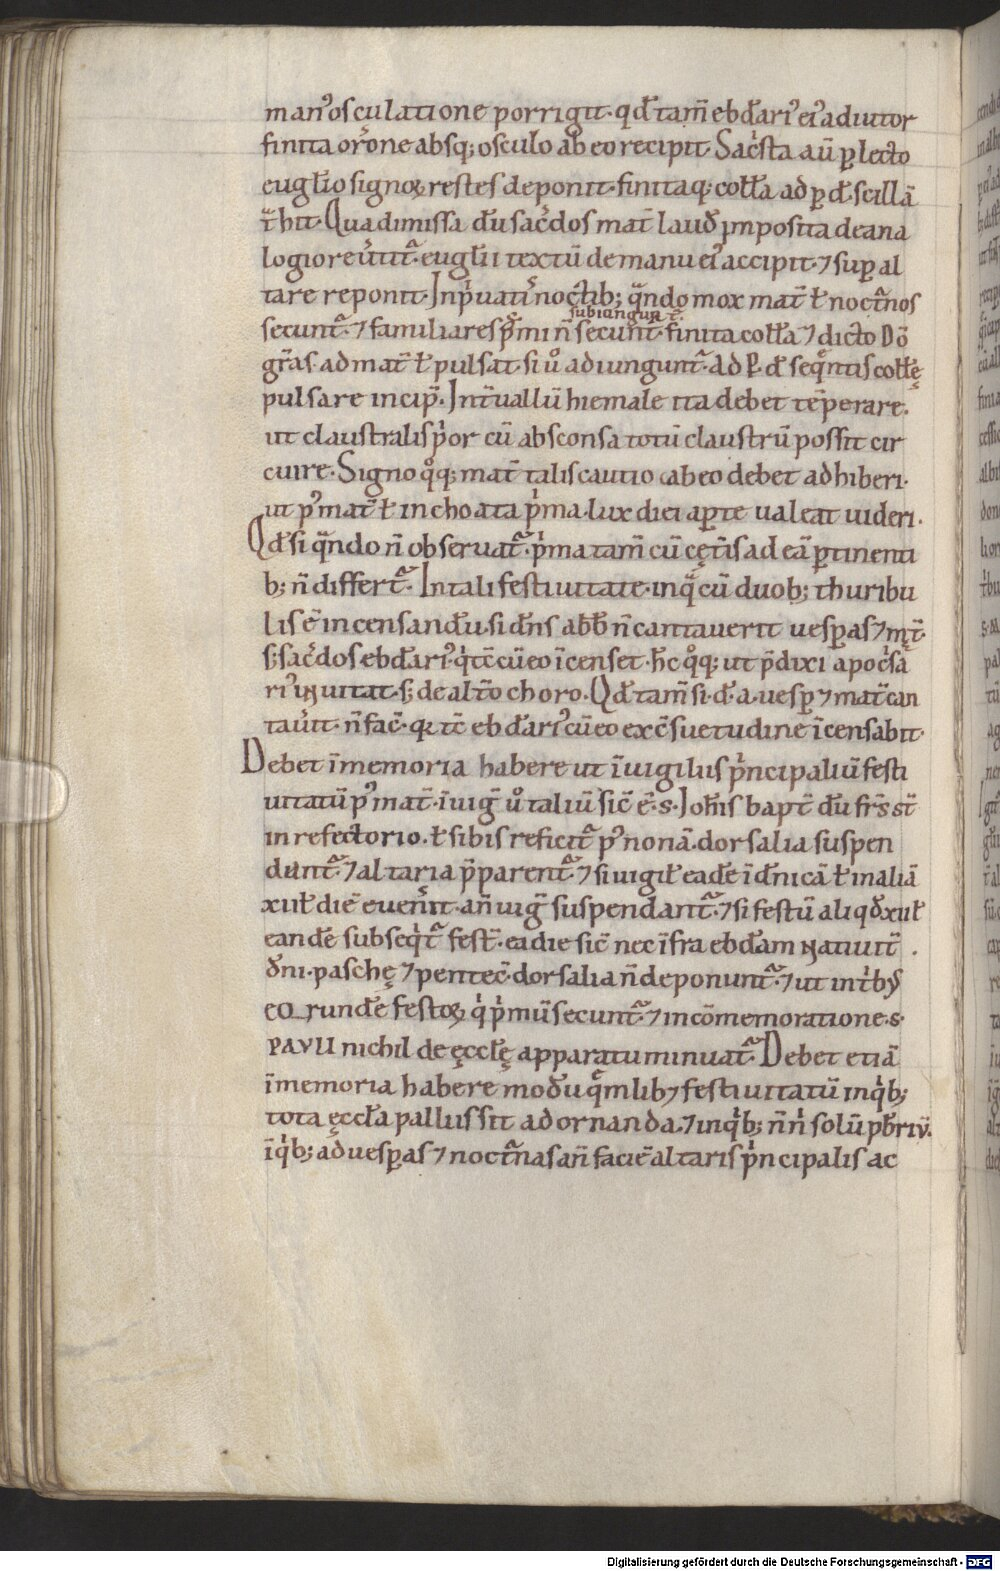 man᾽osculatione porrigit· qđ tam̄ ebđari᾽ ei᾽ adiutor
finita or̄one absq; osculo ab eo recipit· Sac̓sta aū ꝑlecto
eugłio signoꝝ restes deponit· finitaq; cołła ad ꝑ đ· scillā
t̄hit· Qua dimissa đu sac̓dos mat̄ lauđ īmposita de ana
logio reu̓tit᷑· eugłii textū de manu ei᾽ accipit· ⁊ suꝑ al
tare reponit· In p̓uatis noctib; qᷓndo mox mat̄ ł noct̓nos
subiungunt᷑·
secunt᷑· ⁊ familiares p̓mi n̄ secunt᷑· finita cołła ⁊ dicto Dō
gr̄as· ad mat̄ ł pulsat· si u͛ adiungunt᷑· ad P· đ seq̄ntis cołłę
pulsare incip̄· Int̓uallū hiemale ita debet tēperare·
ut claustralis p̓or cū absconsa totū claustrū possit cir
cuire· Signo qͦq; mat̄ talis cautio ab eo debet adhiberi·
ut p᾽ mat̄ ł inchoata p̓ma· lux diei aꝑte ualeat uideri·
Qđ si qᷓndo n̄ obseruat᷑· p̓ma tam̄ cū cęt̓is ad eā ꝑtinenti
b; n̄ differt᷑· In tali festiuitate· in qᷓ cū duob; thuribu
lis ē incensandū· si dn̄s abƀ n̄ cantauerit uesꝑas ⁊ mt̄·
s; sac̓dos ebđari᾽ q̓ tc̄ cū eo īcenset· h̄c qͦq; ut p̄dixi apoc̓sa
ri᾽ inuitat· s; de alt̓o choro· Qđ tam̄ si· đ· a· uesꝑ ⁊ mat̄ can
tau̓it· n̄ fac̄· qꝛ tc̄ ebđari᾽ cū eo ex c̄suetudine īcensabit·
Debet ī memoria habere ut ī uigiliis p̓ncipaliū festi
uitatū p᾽ mat̄· ī uiḡ u͛ taliū sic̄ ē· s· Joh̄is bapt̄ đu fr̄s st̄
in refectorio· ł si bis reficit᷑ p᾽ nonā· dorsalia suspen
dunt᷑· ⁊ altaria p̄parent᷑· ⁊ si uigił eadē ī dn̄icā ł in aliā
xii ł diē euen̓it· an̄ uiḡ suspendant᷑· ⁊ si festū aliqđ xii ł
eandē subseq̓t᷑ fest̄· ea die sic̄ nec īfra ebđam natiuit̄·
đni· paschę ⁊ pentec̄· dorsalia n̄ deponunt᷑· ⁊ ut in t̓b;
eorundē festoꝝ q̓ p̓mū secunt᷑· ⁊ in cōmemoratione· s·
PAVLI nichil de ęccłę apparatu minuat᷑· Debet etiā
ī memoria habere mođu qͦmlib; festiuitatū in q̓b;
tota ęccła palliis sit adornanda· ⁊ in q̓b; n̄ n̓ solū pƀriū·
ī q̓b; ad uesꝑas ⁊ noct̓nas an̄ faciē altaris p̓ncipalis ac
Digitalisierung gefördert durch die Deutsche Forschungsgemeinschaft - DFG